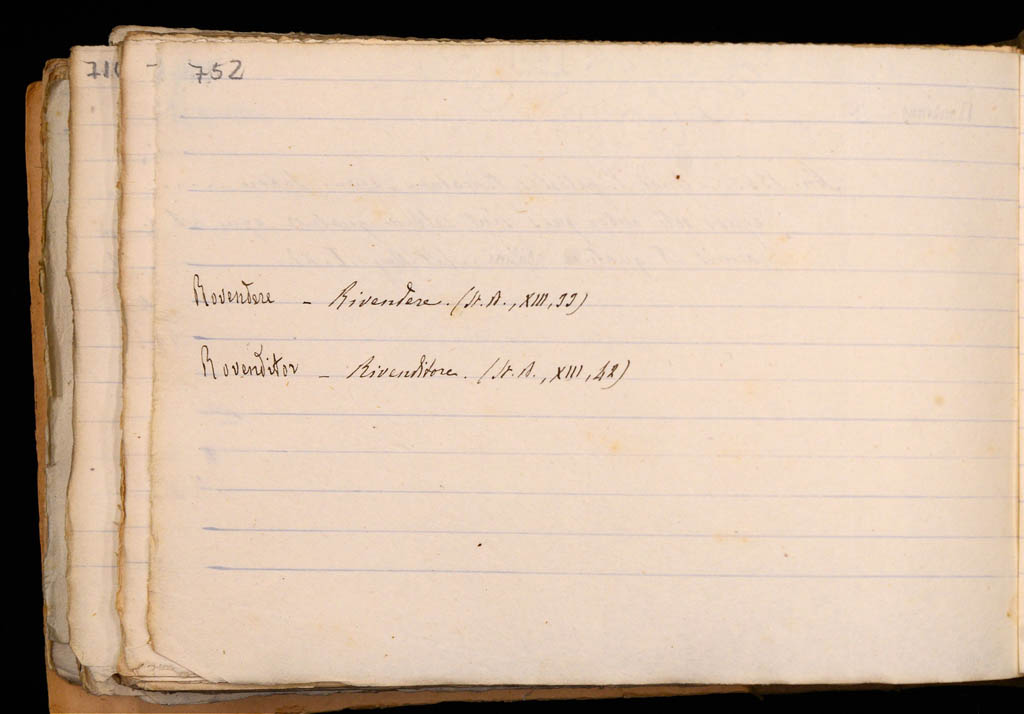 752
Rovendere - Rivendere. (St. A., XIII, 33)
Rovenditor - Rivenditore. (St. A., XIII, 42)